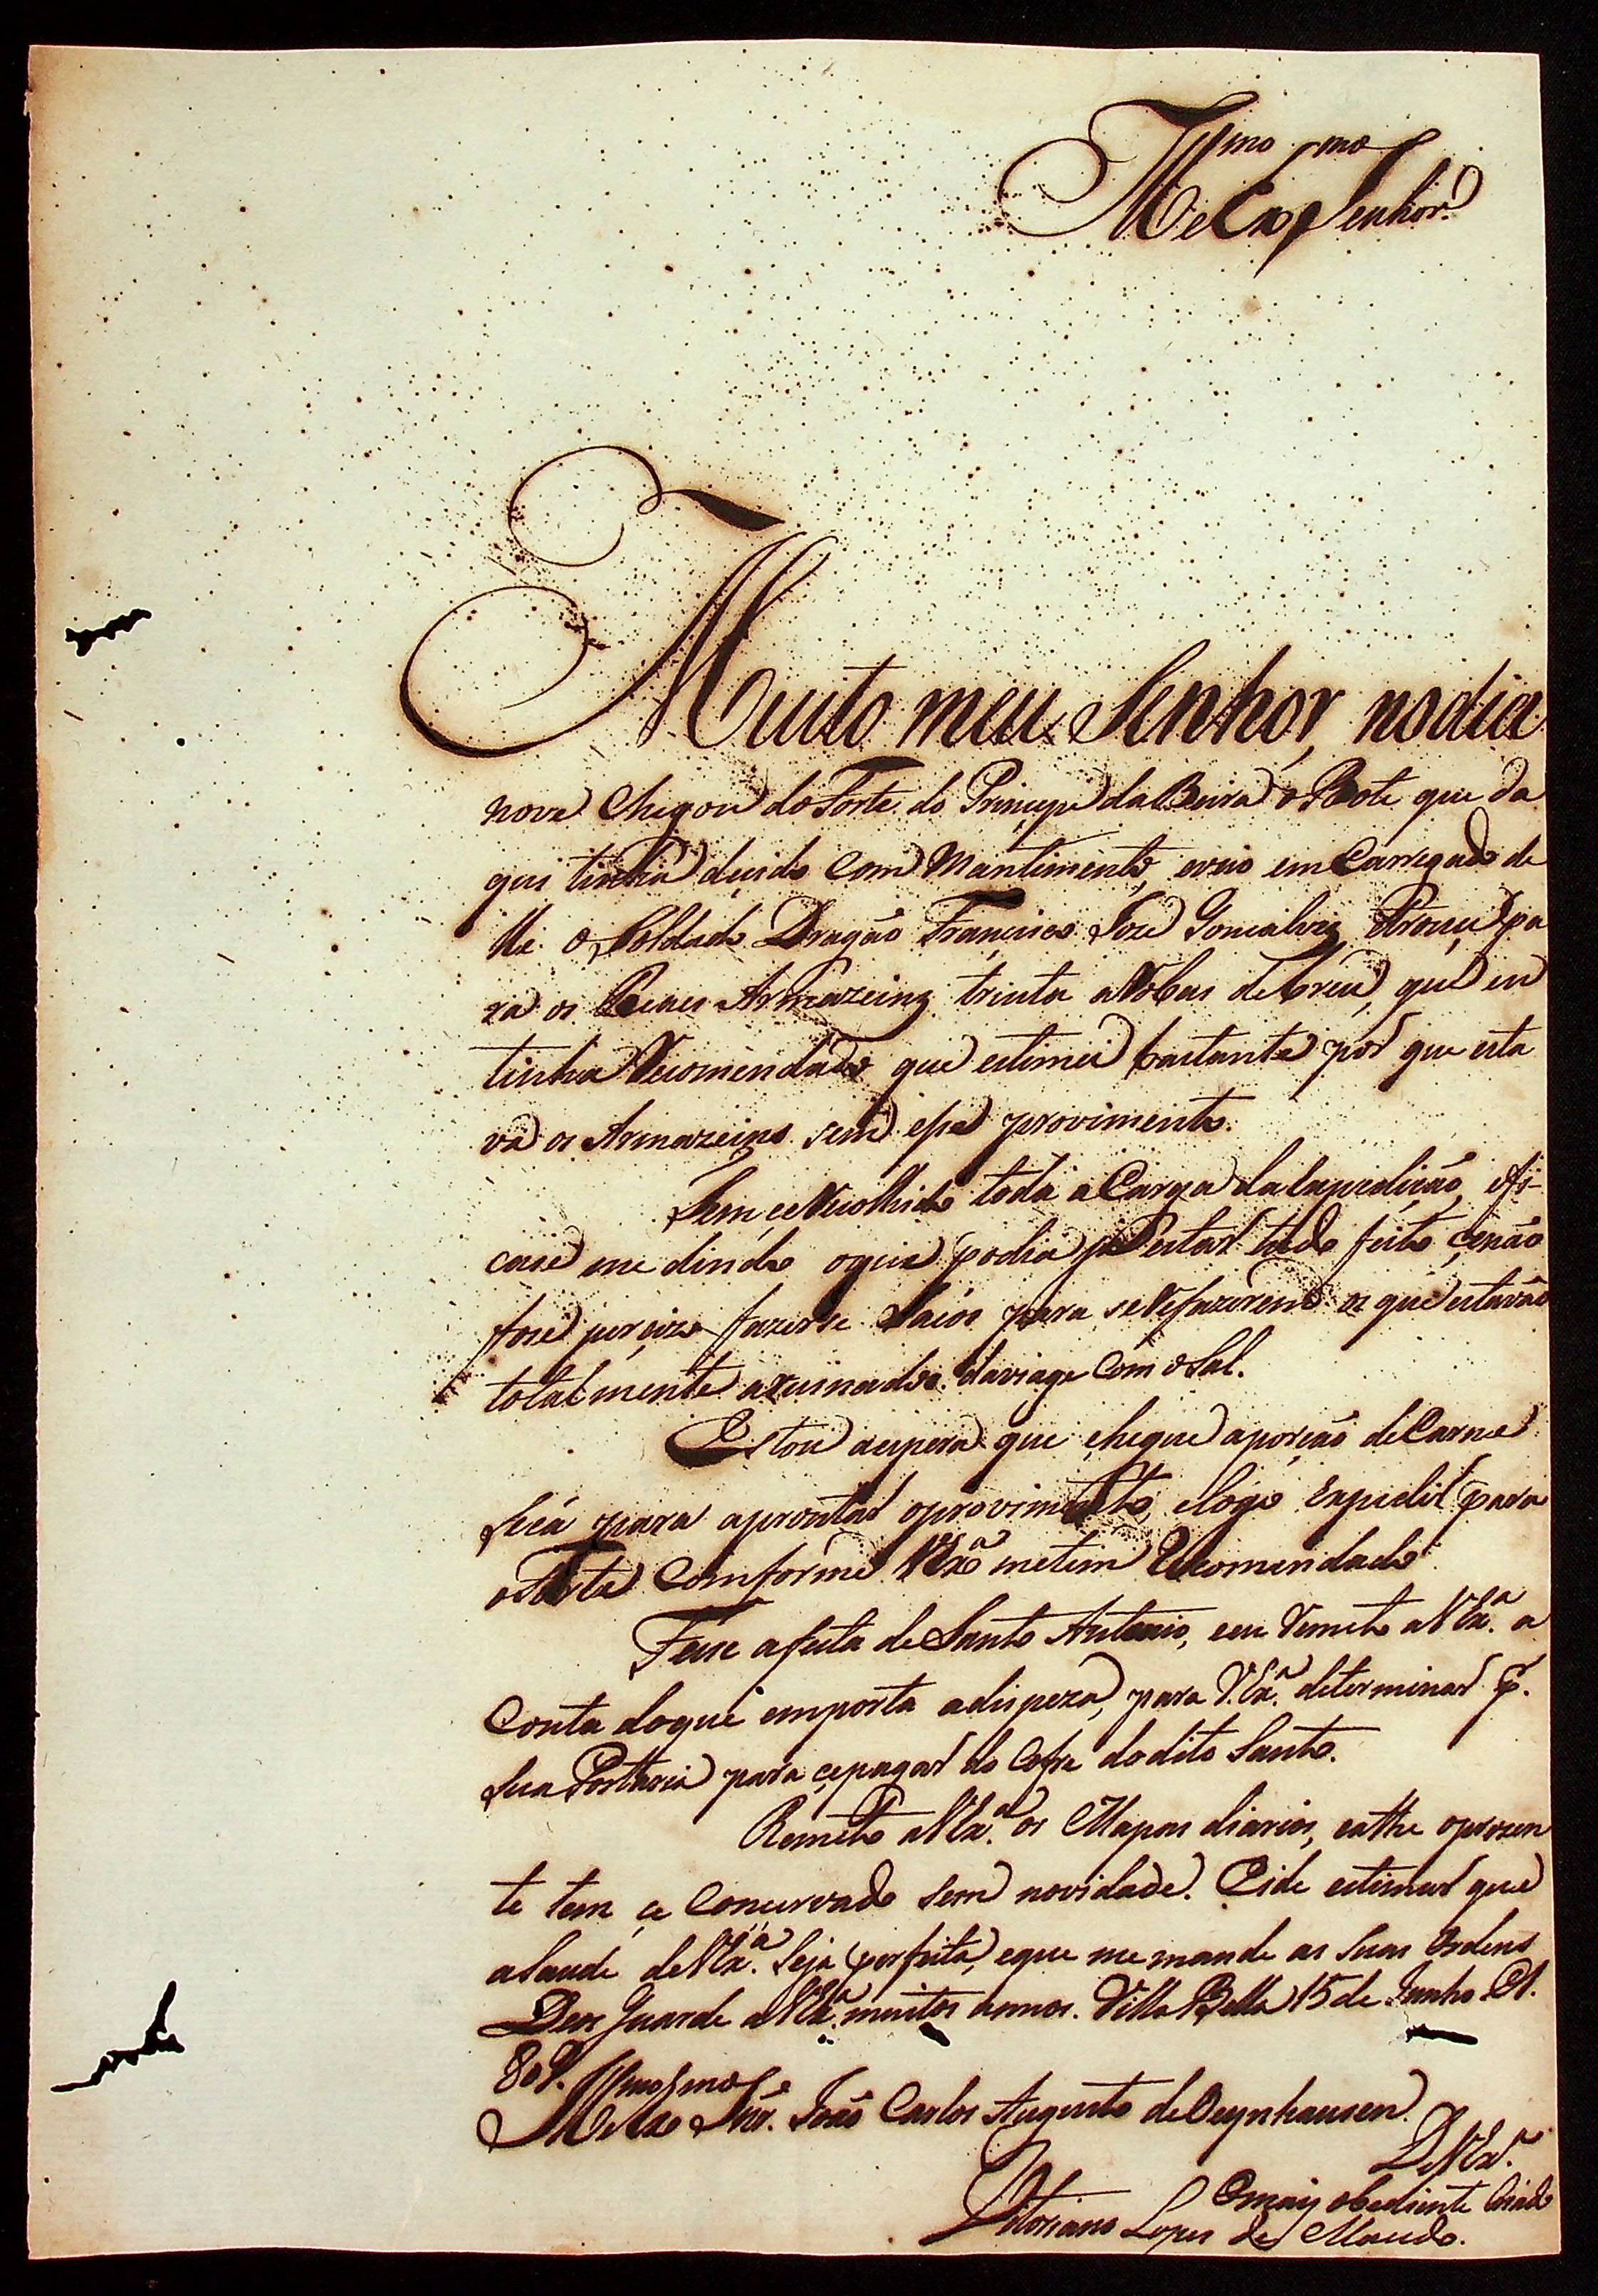 Illmo e Exmo Senhor
Muito meu Senhor, nodia
nove chegou do Forte do Principe da Beira o Bote que da
qui tinha deçido com Mantimento, eveio emCarregado de
lle o Soldado Dragão Françisco Joze Gonçalvez Trouçe pa
ra os Reaes Armazeinz trinta aRobas debreu, que eu
tinha Recomendado que estimei bastante por que esta
vão os Armazeins sem esse provimento.
Tem ceRecolhido toda aCarga da Expedição, efi-
case medindo oque podia ja estar tudo feito çenão
fose perçizo fazerse Sacos para seRefazerem os que estavão
totalmente aruinados daviage Com oSal.
Estou aespera que chegue aporção deCarne
Seca para aprontar oprovimento, elogo Expedir para
oForte Comforme VExa metem Recomendado
Fesse afesta de Santo Antonio, eeu Remeto aVExa. a
Conta doque emporta adispeza, para V.Exa. determinar p.
sua Portaria para çepagar do Cofre dodito Santo.
Remeto aVExa. os Mapas diarios, eathe oprezen
te tem çe Concervado sem novidade. Eide estimar que
aSaude deVExa. Seja perfeita, eque memande as suas Ordens
Deos Guarde aVExa. muitos annos. Villa Bella 15 de Junho D.
809.
Illmo e Exmo Snr. João Carlos Augusto deOeynhausen.
DeVExa.
Omais obediente Criado
Vitoriano Lopes de Macedo.